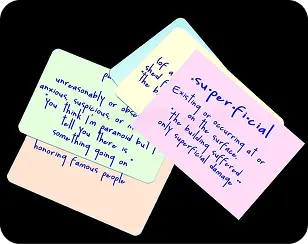 unreasonably or
anxious, suspicious, or
"you think I'm paranoid but I
tell you there is
something going on"
honoring famous people
(of a
shed f
the b
·super·ficial
Existing or occurring at or
on the surface.
"the building suffered
only superficial damage"